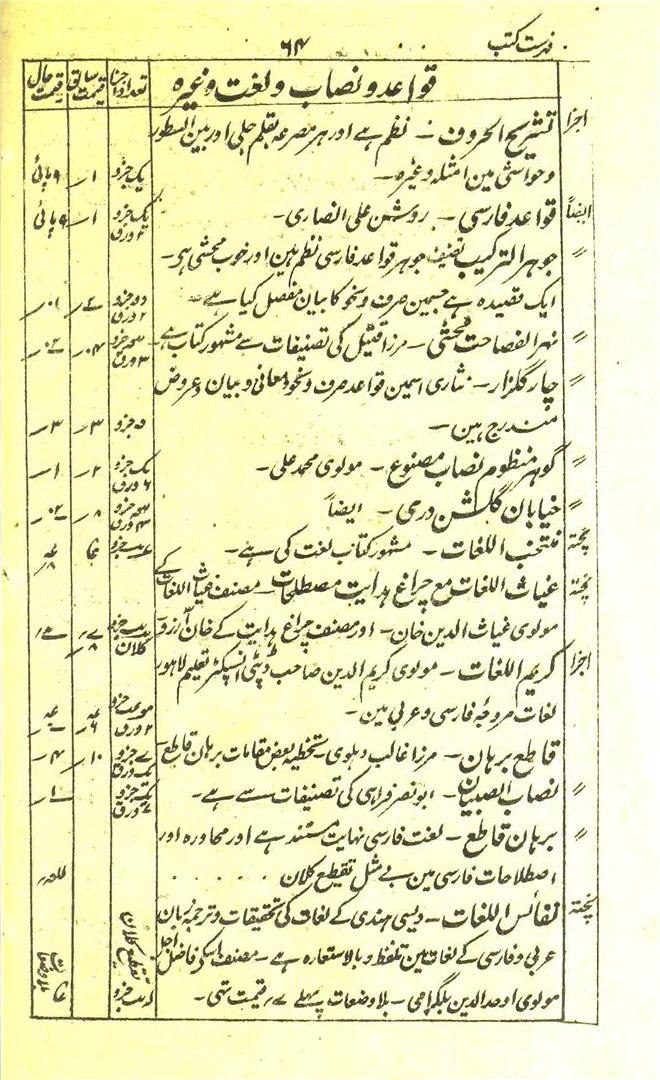 فہرست کتب
۶۴
قواعد و نصاب و لغت وغیرہ تعداد اجزا قیمت سابق قیمت حال
اجزا تشریح الحروف - نظم ہے اور ہر مصرعہ بقلم جلی اور بین السطور
وحواشی مین امثلہ وغیرہ - یک جزو ۱؍ ۹ پائی
ایضاً قواعد فارسی - روشن علی انصاری - یک جزو ۲ ورق ۱؍ ۹ پائی
〃 جوہر الترکیب تصنیف جوہر قواعد فارسی نظم ہین اور خوب محشی ہی -
ایک قصیدہ ہے جسمین صرف و نحو کا بیان مفصل کیا ہے - دو جزو ۲ ورق
〃 نہر الفصاحت محشی - مرزا قتیل کی تصنیفات سے مشہور کتاب ہے - سہ جزو ۳ ورق
〃 چار گلزار - نثاری اسمین قواعد صرف و نحو و معانی و بیان و عروض
مندرج ہین - ۵ جزو ۳؍ ۳؍
〃 گوہر منظوم نصاب مصنوع - مولوی محمد علی - یک جزو ۶ ورق ۲؍ ۱؍
〃 خیابان گلشن دری - ایضاً سہ جزو ۳ ورق ۸؍
پختہ منتخب اللغات - مشہور کتاب لغت کی ہے -
پختہ غیاث اللغات مع چراغ ہدایت مصطلحات - مصنف غیاث اللغات کے
مولوی غیاث الدین خان - اور مصنف چراغ ہدایت کے خان آرزو - کلان
اجزا کریم اللغات - مولوی کریم الدین صاحب ڈپٹی انسپکٹر تعلیم لاہور
لغات مروجۂ فارسی و عربی مین - ۲ ورق
قاطع برہان - مرزا غالب دہلوی - تخطیہ بعض مقامات برہان قاطع - ۷ جزو یک ورق ۱۰؍ ۴؍
〃 نصاب الصبیان - ابو نصر فراہی کی تصنیفات سے ہے - ۱؍
〃 برہان قاطع - لغت فارسی نہایت مستند ہے اور محاورہ اور
اصطلاحات فارسی مین بے مثل تقطیع کلان . . . . . .
پختہ نفائس اللغات - دیسی ہندی کے لغات کی تحقیقات و ترجمہ زبان
عربی و فارسی کے لغات مین تلفظ و بالاستعارہ ہے - مصنف اسکی فاضل اجل تقطیع کلان
مولوی اوحد الدین بلگرامی - بلا وضعات پہلے قیمت تھی - بلا وضعات